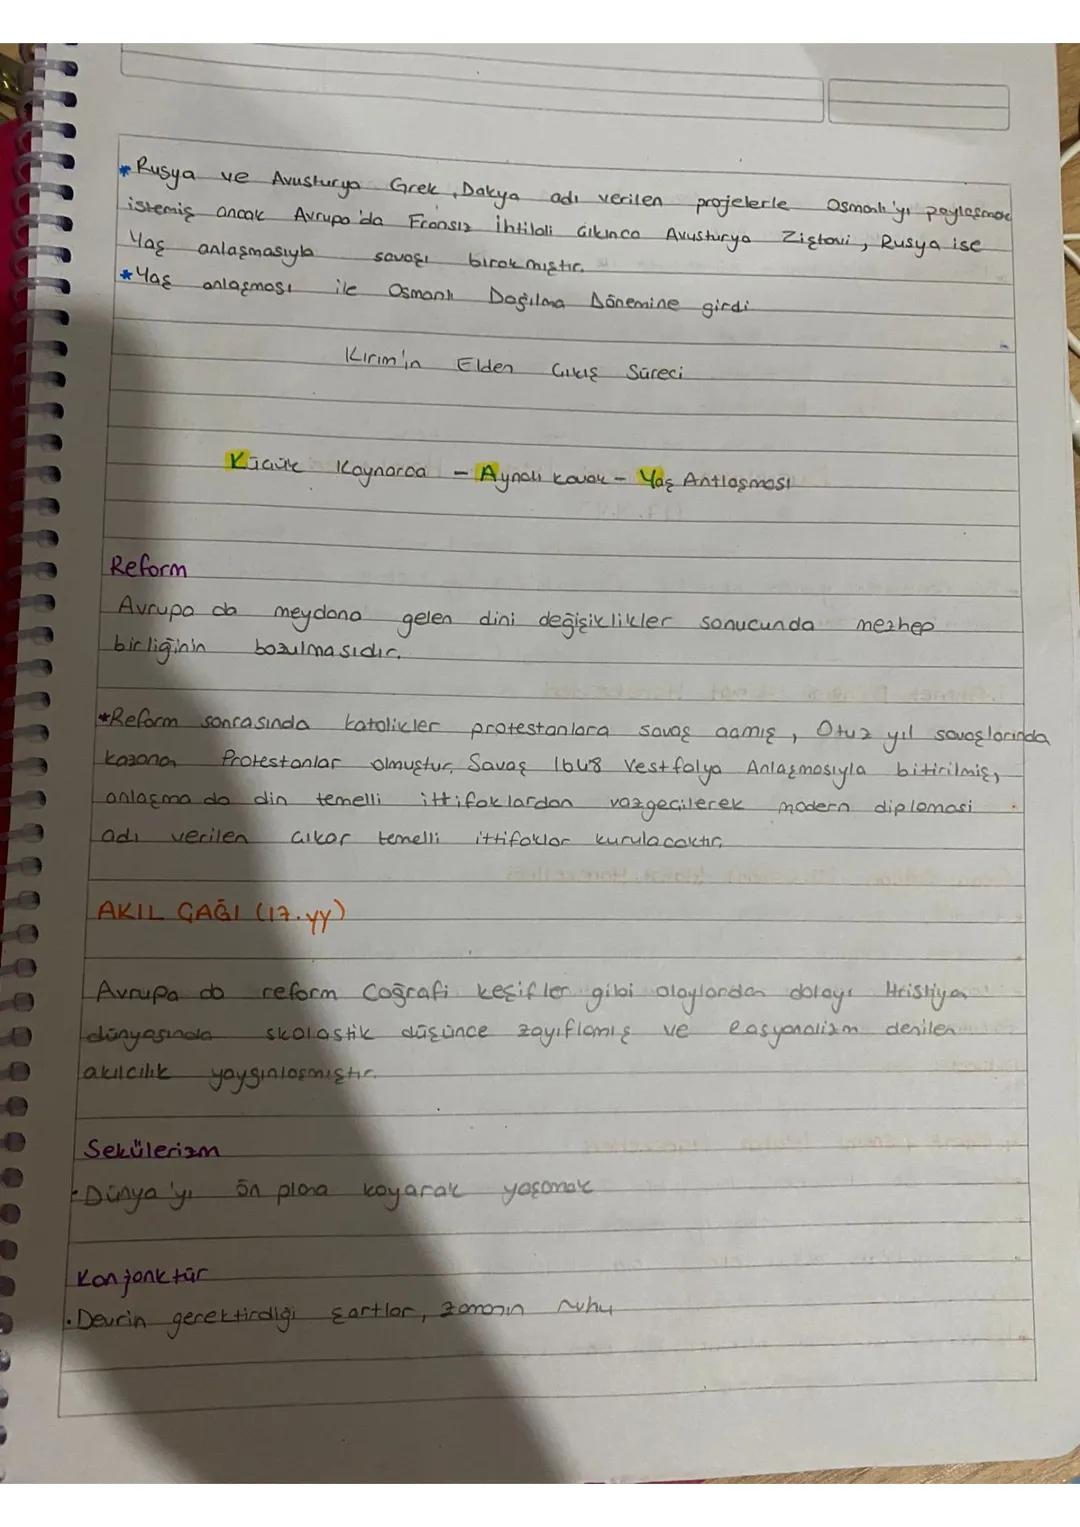 * Rusya ve Avusturya Grek, Dakya adı verilen projelerle Osmanlı'yı paylaşmak
istemiş ancak Avrupa'da Fransız İhtilali çıkınca Avusturya Ziştovi, Rusya ise
Yaş anlaşmasıyla savaşı bırakmıştır.
* Yaş anlaşması ile Osmanlı Dağılma Dönemine girdi
Kırım'ın Elden Çıkış Süreci
Küçük Kaynarca - Aynalı kavak - Yaş Antlaşması
Reform
Avrupa da meydana gelen dini değişiklikler sonucunda mezhep
birliğinin bozulmasıdır.
*Reform sonrasında katolikler protestanlara savaş açmış, Otuz yıl savaşlarında
kazanan Protestanlar olmuştur. Savaş 1648 Vestfalya Anlaşmasıyla bitirilmiş,
anlaşma da din temelli ittifaklardan vazgeçilerek modern diplomasi
adı verilen çıkar temelli ittifaklar kurulacaktır.
AKIL ÇAĞI (17.yy)
Avrupa da reform Coğrafi keşifler gibi olaylardan dolayı Hristiyan
dünyasında skolastik düşünce zayıflamış ve Rasyonalizm denilen
akılcılık yaygınlaşmıştır.
Sekülerizm
• Dünya'yı ön plana koyarak yaşamak
Konjonktür
• Devrin gerektirdiği şartlar, zamanın ruhu